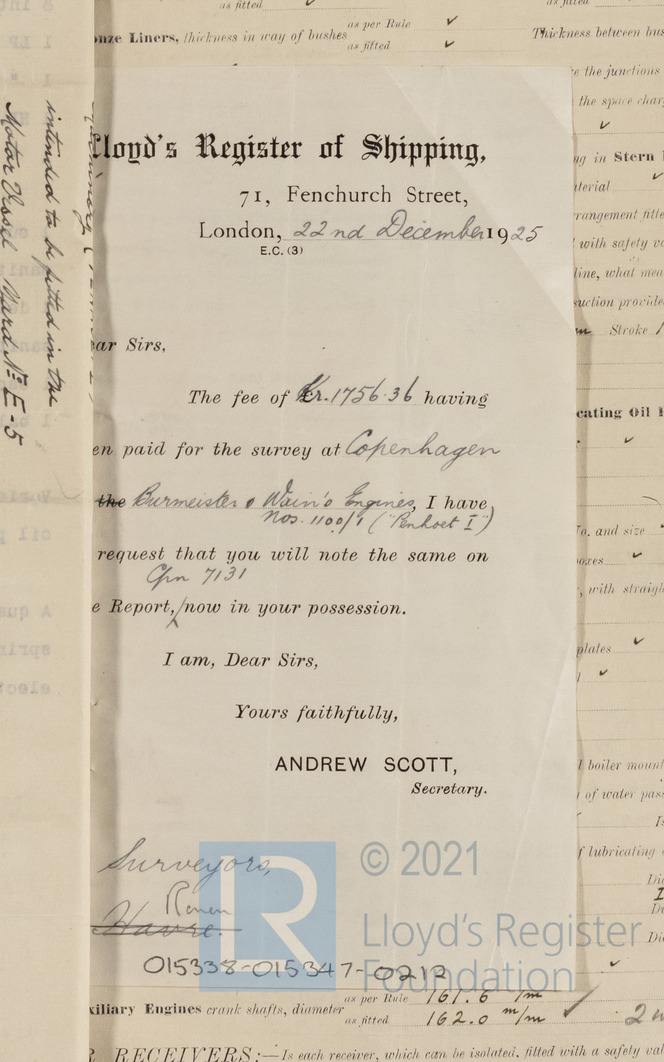 as fitted ✓
as fitted
as per Rule ✓
onze Liners, thickness in way of bushes
as fitted ✓
Thickness between bus
e the junctions
the space char
✓
ng in Stern
aterial ✓
rrangement fitte
with safety va
line, what mea
suction provide
Stroke
cating Oil
✓
o. and size ✓
boxes ✓
, with straigh
plates ✓
✓
l boiler mount
of water pass
Is
f lubricating
intended to be fitted in the
Motor Vessel Yard No. E-5
Lloyd's Register of Shipping,
71, Fenchurch Street,
London, 22nd December 1925
E.C. (3)
ar Sirs,
The fee of Kr. 1756.36 having
en paid for the survey at Copenhagen
the Burmeister & Wain's Engines, I have
Nos. 1100/1 ("Penhoet I")
request that you will note the same on
Cpn 7131
e Report, now in your possession.
I am, Dear Sirs,
Yours faithfully,
ANDREW SCOTT,
Secretary.
Surveyors,
Rouen
Havre.
015338-015347-0212
LR
© 2021
Lloyd's Register
Foundation
xiliary Engines crank shafts, diameter
as per Rule 161.6 m/m
as fitted 162.0 m/m
R RECEIVERS:—Is each receiver, which can be isolated, fitted with a safety val